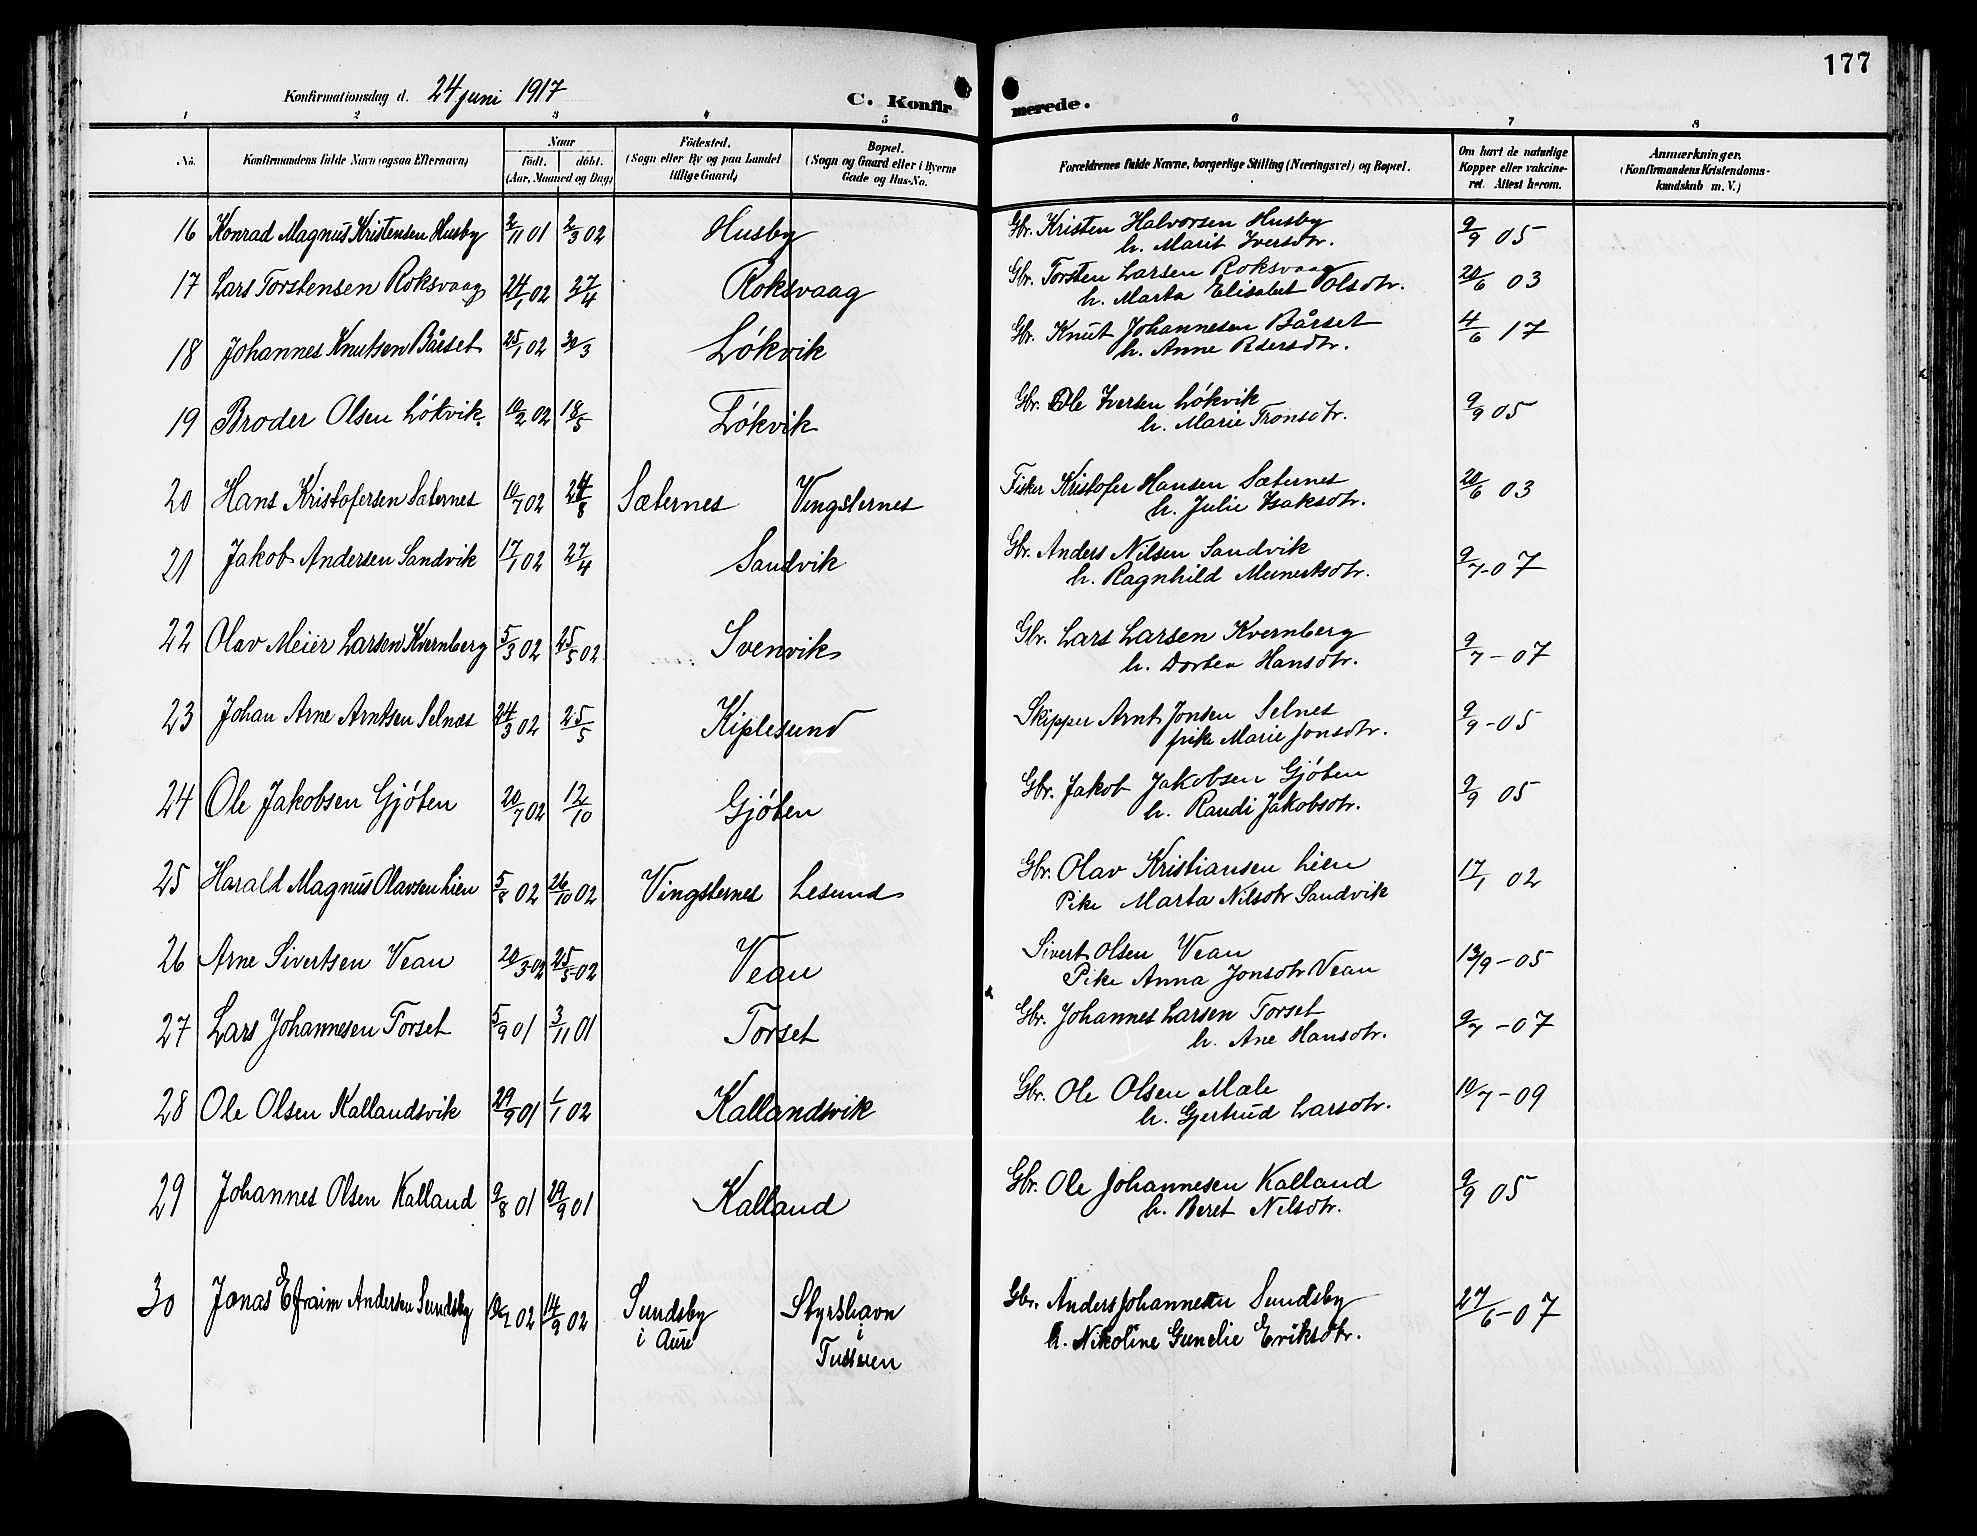 177
Konfirmationsdag d. 24 juni 1917
C. Konfirmerede.
1 2 3 4 5 6 7 8
No.
Konfirmandens fulde Navn (ogsaa Efternavn)
Naar
födt. döbt.
(Aar, Maaned og Dag)
Födested.
(Sogn eller By og paa Landet
tillige Gaard)
Bopæl.
(Sogn og Gaard eller i Byerne
Gade og Hus-No.
Forældrenes fulde Navne, borgerlige Stilling (Næringsvei) og Bopæl.
Om havt de naturlige
Kopper eller vakcine-
ret. Attest herom.
Anmærkninger.
(Konfirmandens Kristendoms-
kundskab m. V.)
16 Konrad Magnus Kristensen Husby 2/11 01 2/3 02 Husby Gbr. Kristen Halvorsen Husby 9/9 05
h. Marit Iversdtr.
17 Lars Torstensen Roksvaag 24/1 02 27/4 Roksvaag Gbr. Torsten Larsen Roksvaag 20/6 03
h. Marta Elisabet Olsdtr.
18 Johannes Knutsen Bårset 25/1 02 30/3 Lökvik Gbr. Knut Johannesen Bårset 4/6 17
h. Anne Pedersdtr.
19 Broder Olsen Lökvik. 10/2 02 18/5 Lökvik Gbr. Ole Iversen Lökvik 9/9 05
h. Marie Tronsdtr.
20 Hans Kristofersen Sæternes 10/7 02 24/8 Sæternes Vingsternes Fisker Kristofer Hansen Sæternes 20/6 03
h. Julie Isaksdtr.
21 Jakob Andersen Sandvik 17/1 02 27/4 Sandvik Gbr. Anders Nilsen Sandvik 9/7-07
h. Ragnhild Meinertsdtr.
22 Olav Meier Larsen Kvernberg 5/3 02 25/5 02 Svenvik Gbr. Lars Larsen Kvernberg 9/7-07
h. Dortea Hansdtr.
23 Johan Arne Arntsen Selnæs 24/3 02 25/5 Kiplesund Skipper Arnt Jonsen Selnes 9/9-05
pike Marie Jonsdtr.
24 Ole Jakobsen Gjöten 20/7 02 12/10 Gjöten Gbr. Jakob Jakobsen Gjöten 9/9 05
h. Randi Jakobsdtr.
25 Harald Magnus Olavsen Lien 5/8 02 26/10 02 Vingsternes Lesund Gbr. Olav Kristiansen Lien 17/1 02
Pike Marta Nilsdtr Sandvik
26 Arne Sivertsen Vean 20/3-02 25/5-02 Vean Sivert Olsen Vean 13/9-05
Pike Anna Jonsdtr Vean
27 Lars Johannesen Torset 5/9 01 3/11 01 Torset Gbr. Johannes Larsen Torset 9/7-07
h. Ane Hansdtr.
28 Ole Olsen Kallandsvik 29/9 01 1/1 02 Kallandsvik Gbr. Ole Olsen Mæle 10/7-09
h. Gjertrud Larsdtr.
29 Johannes Olsen Kalland 9/8 01 29/9 01 Kalland Gbr. Ole Johannesen Kalland 9/9 05
h. Beret Nilsdtr.
30 Jonas Efraim Andersen Sundsby 02 14/9 02 Sundsby Styrshavn Gbr. Anders Johannesen Sundsby 27/6-07
i Aure i h. Nikoline Gunelie Eriksdtr.
Tusteren